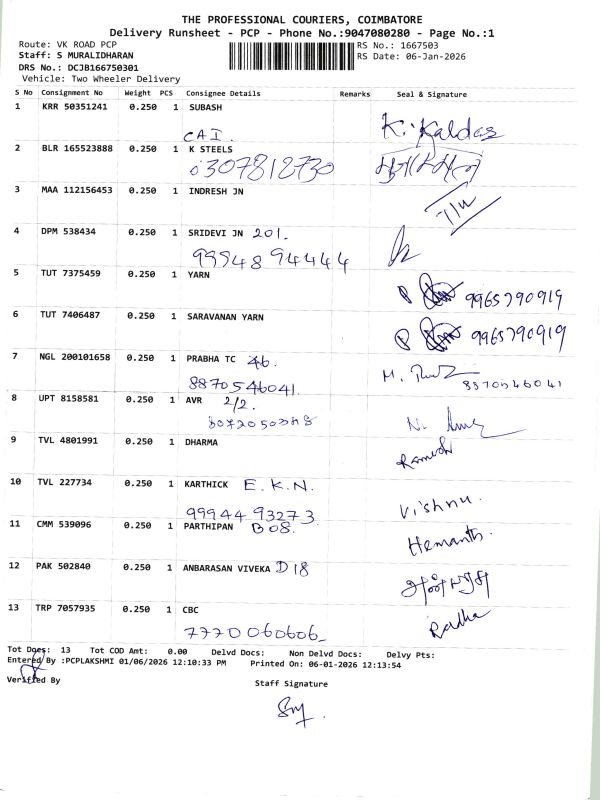 THE PROFESSIONAL COURIERS, COIMBATORE
Delivery Runsheet - PCP - Phone No.:9047080280 - Page No.:1
Route: VK ROAD PCP RS No.: 1667503
Staff: S MURALIDHARAN RS Date: 06-Jan-2026
DRS No.: DCJB166750301
Vehicle: Two Wheeler Delivery
S No Consignment No Weight PCS Consignee Details Remarks Seal & Signature
1 KRR 50351241 0.250 1 SUBASH
CAI. K. Kaldas
2 BLR 165523888 0.250 1 K STEELS
6307812730
3 MAA 112156453 0.250 1 INDRESH JN
4 DPM 538434 0.250 1 SRIDEVI JN 201.
9994894444
5 TUT 7375459 0.250 1 YARN
9965790919
6 TUT 7406487 0.250 1 SARAVANAN YARN
9965790919
7 NGL 200101658 0.250 1 PRABHA TC 46.
8870546041. 8870546041
8 UPT 8158581 0.250 1 AVR 2/2.
9 TVL 4801991 0.250 1 DHARMA Ramesh
10 TVL 227734 0.250 1 KARTHICK E.K.N.
99944 93273 Vishnu.
11 CMM 539096 0.250 1 PARTHIPAN B08. Hemanth.
12 PAK 502840 0.250 1 ANBARASAN VIVEKA D18
13 TRP 7057935 0.250 1 CBC Radha
7770060606
Tot Docs: 13 Tot COD Amt: 0.00 Delvd Docs: Non Delvd Docs: Delvy Pts:
Entered By :PCPLAKSHMI 01/06/2026 12:10:33 PM Printed On: 06-01-2026 12:13:54
Verified By
Staff Signature